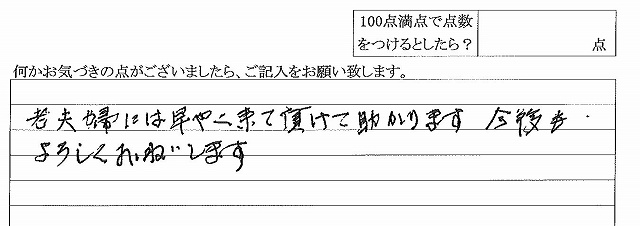 100点満点で点数
をつけるとしたら？
点
何かお気づきの点がございましたら、ご記入をお願い致します。
老夫婦には早やく来て頂けて助かります 今後も
よろしくおねがいします